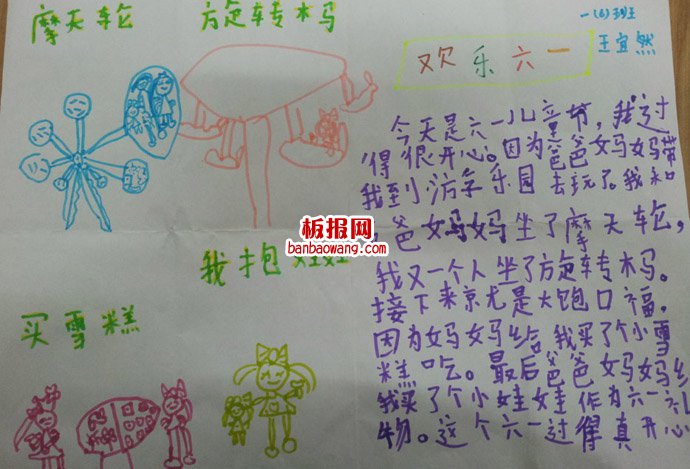 摩天轮
旋转木马
一(6)班
王宜然
欢乐六一
今天是六一儿童节,我过
得很开心。因为爸爸妈妈带
我到游乐园去玩了。我和
爸妈妈坐了摩天轮,
我又一个人坐了旋转木马。
接下来就是大饱口福。
因为妈妈给我买了个小雪
糕吃。最后爸爸妈妈给
我买了个小娃娃作为六一礼
物。这个六一过得真开心
板报网
banbaowang.com
我抱娃娃
买雪糕